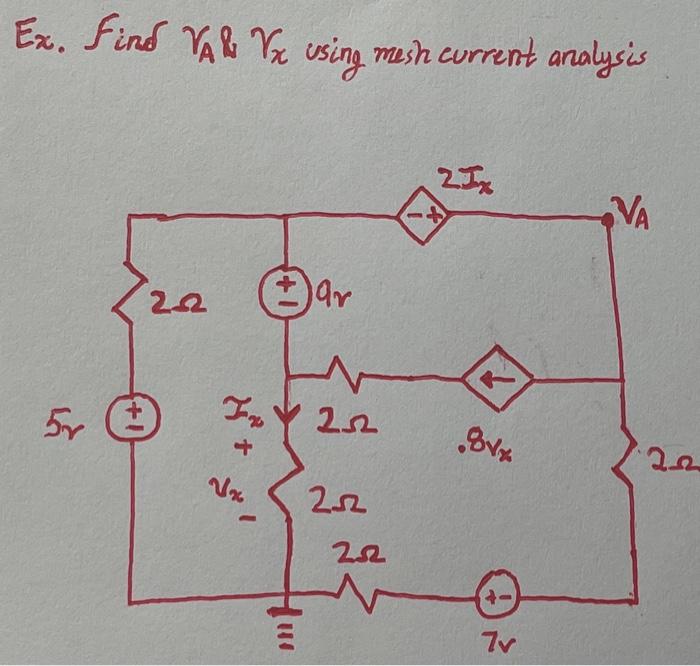 Ex. Find VA & Vx using mesh current analysis
2Ix
- +
VA
2Ω
+
-
9v
5v
+
-
Ix
2Ω
.8Vx
+
Vx
-
2Ω
2Ω
2Ω
+ -
7v